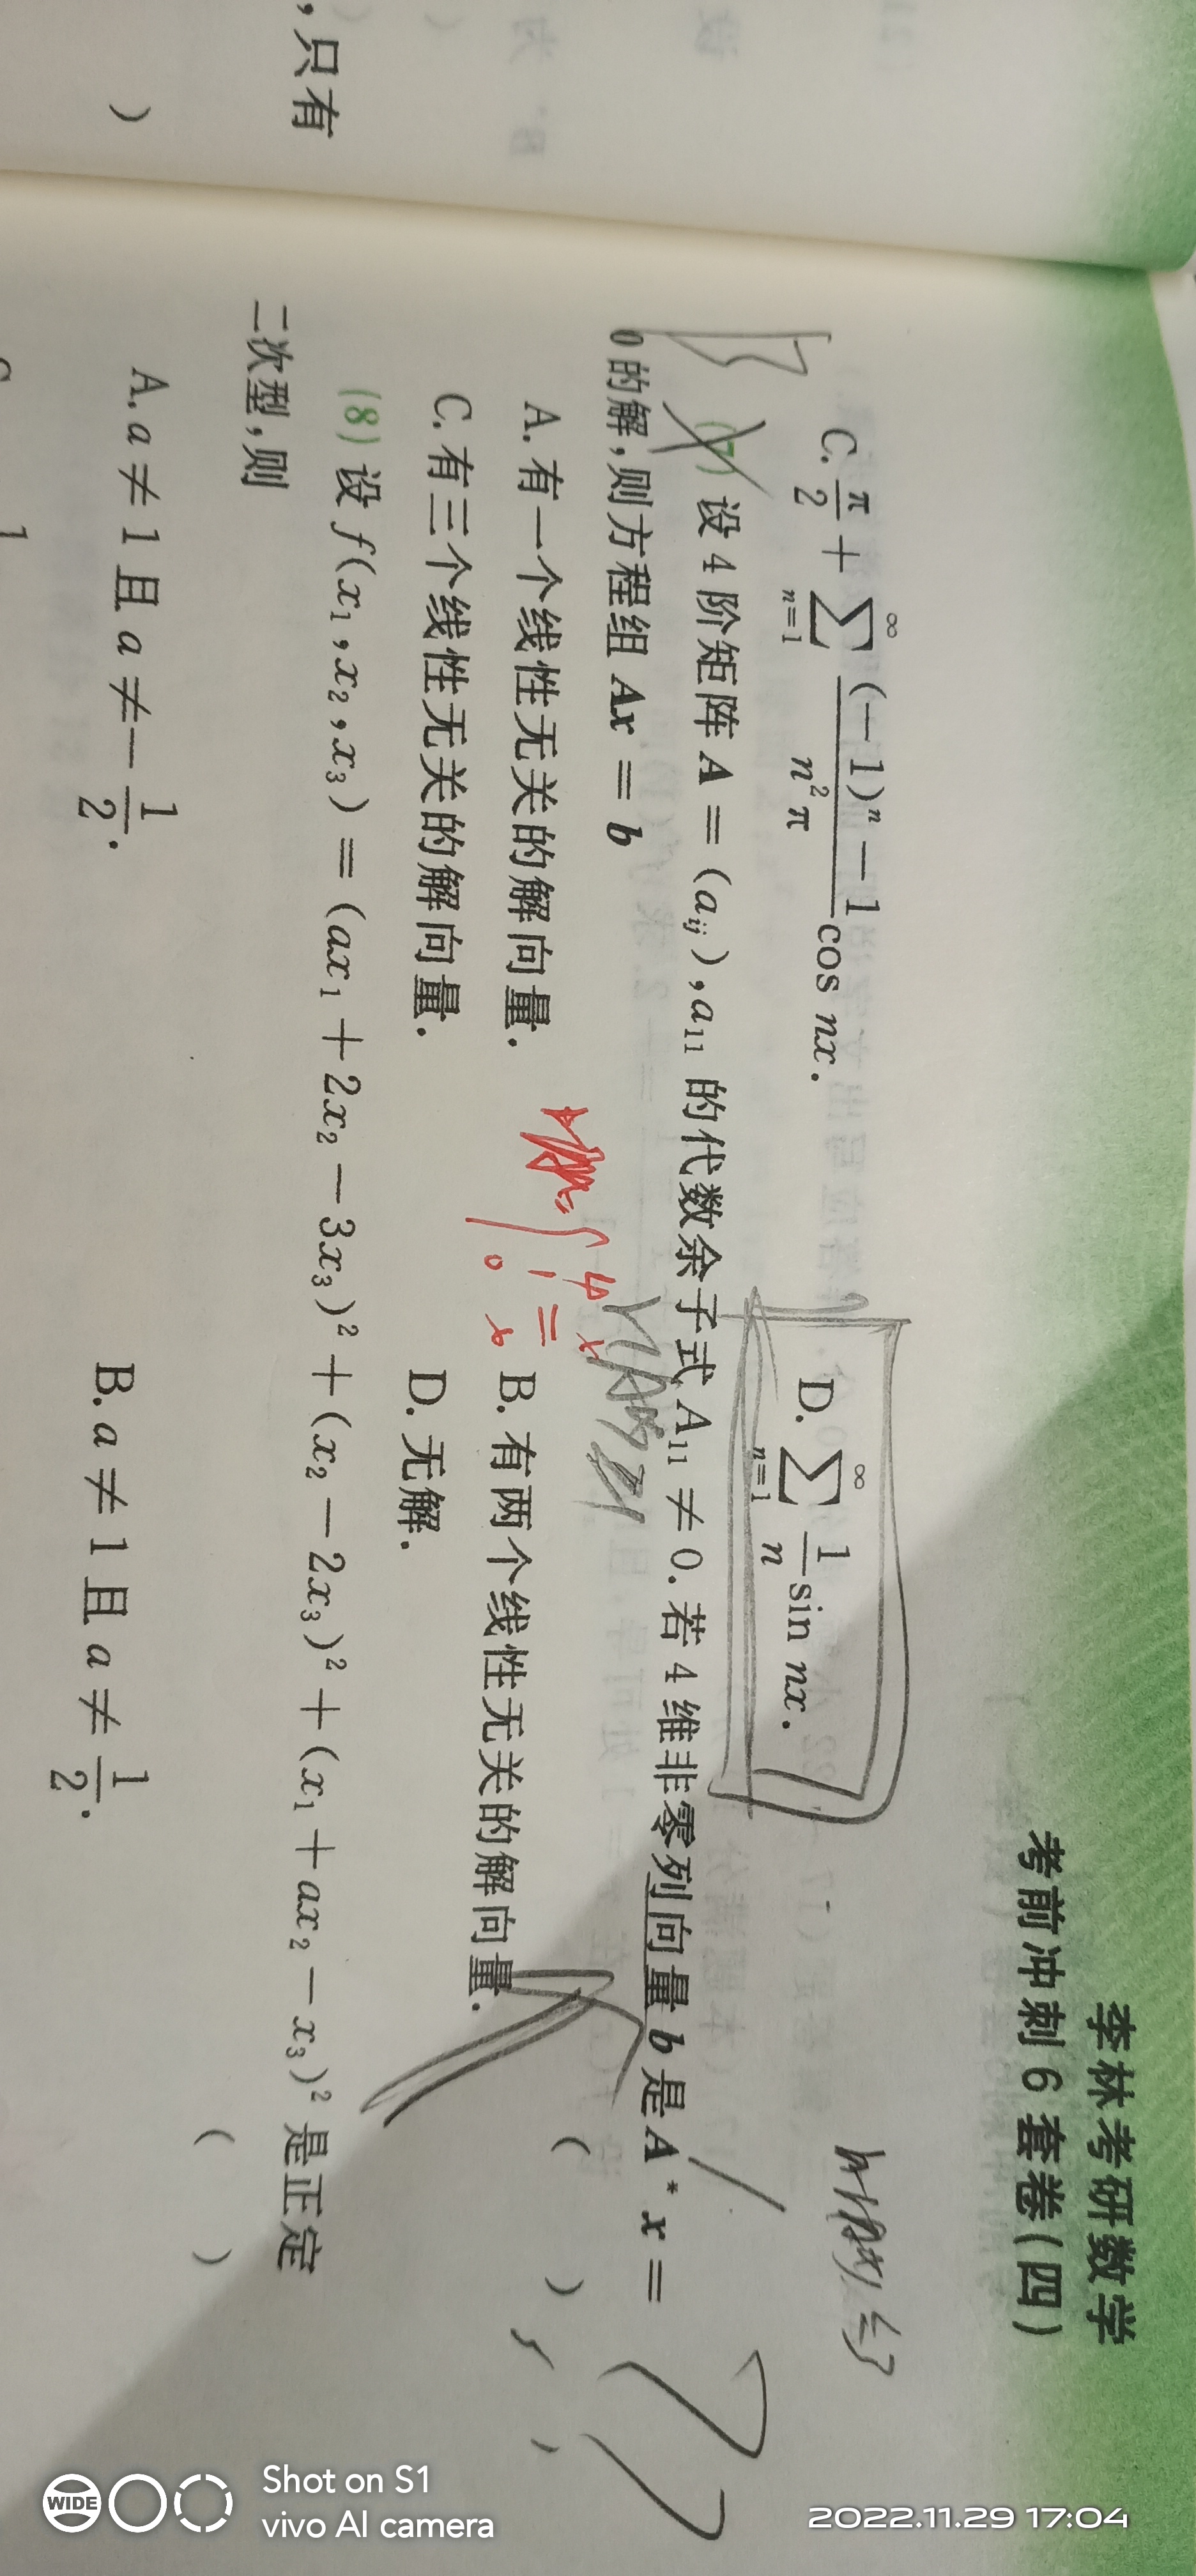 李林考研数学
考前冲刺6套卷(四)
C. π/2 + ∑_{n=1}^{∞} ((-1)ⁿ-1)/(n²π) cos nx.
D. ∑_{n=1}^{∞} 1/n sin nx.
(7) 设 4 阶矩阵 A = (a_{ij}), a₁₁ 的代数余子式 A₁₁ ≠ 0. 若 4 维非零列向量 b 是 A* x =
0 的解,则方程组 Ax = b
( )
A. 有一个线性无关的解向量.
B. 有两个线性无关的解向量.
C. 有三个线性无关的解向量.
D. 无解.
(8) 设 f(x₁,x₂,x₃) = (ax₁ + 2x₂ - 3x₃)² + (x₂ - 2x₃)² + (x₁ + ax₂ - x₃)² 是正定
二次型,则
( )
A. a ≠ 1 且 a ≠ -1/2.
B. a ≠ 1 且 a ≠ 1/2.
,只有
)
Shot on S1
vivo AI camera
WIDE
2022.11.29 17:04